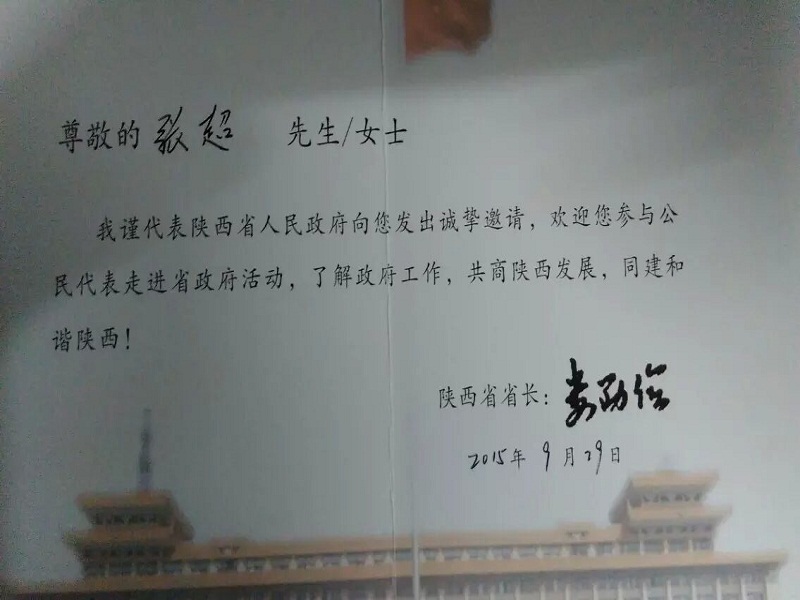 尊敬的张超 先生/女士
我谨代表陕西省人民政府向您发出诚挚邀请，欢迎您参与公
民代表走进省政府活动，了解政府工作，共商陕西发展，同建和
谐陕西！
陕西省省长：娄勤俭
2015年9月29日